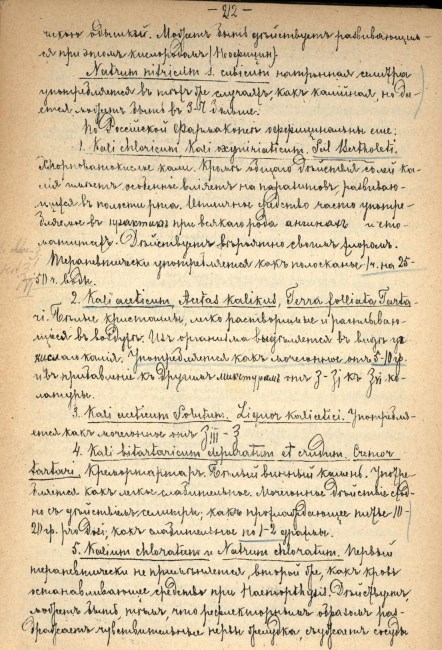 — 212 —
ческою одышкой. Можетъ быть дѣйствуетъ развивающим-
ся при этомъ кислородомъ
Natrum nitricum s. cubicum натронная селитра
употребляется въ тѣхъ же случаяхъ, какъ калійная, но да-
ется можетъ быть въ 3-4 больше.
По Россійской Фармакопеѣ оффицинальны еще:
1. Kali chloricum Kali oxymuriaticum. Sal Bertholeti.
Хлорноватокислое кали. Кромѣ общаго дѣйствія солей ка-
лія имѣетъ особенное вліяніе на паразитовъ, развиваю-
щихся въ полости рта. Отличное средство часто употре-
бляемое въ при всякаго рода ангинахъ и сто-
матитахъ. Дѣйствуетъ вѣроятно своимъ хлоромъ.
Терапевтически употребляется какъ полосканье 1 ч. на 25-
50 ч. воды.
2. Kali aceticum, Acetas kalikus, Terra folliata Tarta-
ri. Бѣлые кристаллы, легко растворимые и расплываю-
щіеся въ воздухѣ. Изъ организма выдѣляется въ видѣ угле-
кислаго калія. Употребляется какъ мочегонное отъ 5-10 гр.
и въ прибавленіе къ другимъ микстурамъ отъ ʒ - ʒj къ ʒvj ко-
латуры.
3. Kali aceticum Solutum. Liquor kali acetici. Употребля-
ется какъ мочегонное отъ ʒiii - ℥
4. Kali bitartaricum depuratum et crudum. Cremor
tartari. Кремортартаръ. Бѣлый винный камень. Употре-
бляется какъ легкое слабительное. Мочегонное дѣйствіе сход-
но съ дѣйствіемъ селитры, какъ прохлаждающее питье 10-
20 гр. pro dosi; какъ слабительное по 1-2 драхмы.
5. Kalium chloratum и Natrum chloratum. Первый
терапевтически не примѣняется, второй же, какъ кровь
останавливающее средство при Haemopthysis. Дѣйствуетъ,
можетъ быть тѣмъ, что рефлекторнымъ образомъ раз-
дражаетъ чувствительные нервы желудка, съуживаетъ сосуды